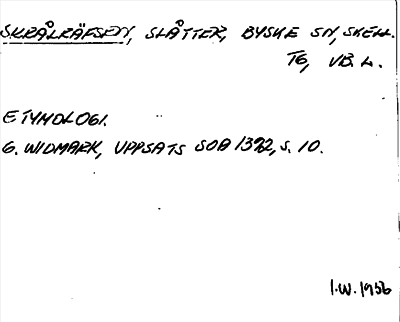 SKRÅLRÄFSEN, SLÅTTER, BYSKE SN, SKELL.
TG, VB. L.
ETYMOLOGI.
G. WIDMARK, UPPSATS SOÄ 1392, S. 10.
I.W. 1956